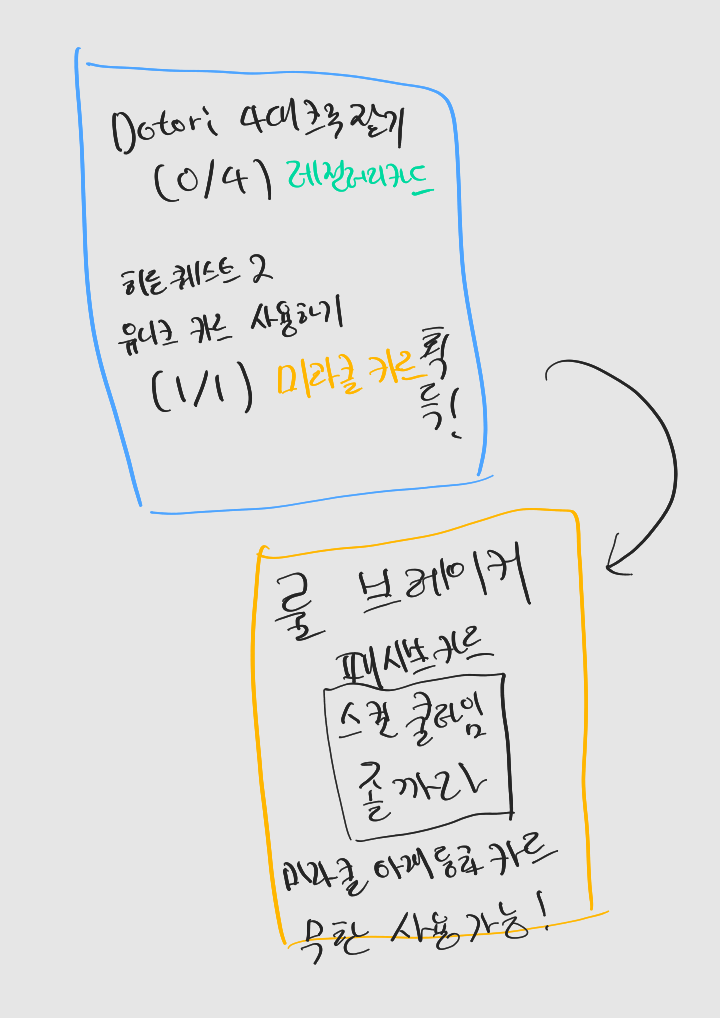 Dotori 4대크루 잡기
(0/4) 레전더리카드
히든퀘스트 2
유니크 카드 사용하기
(1/1) 미라클 카드 획득!
룰 브레이커
패시브카드
스킬 쿨타임
좆까라
미라클 아래 등급 카드
무한 사용가능!